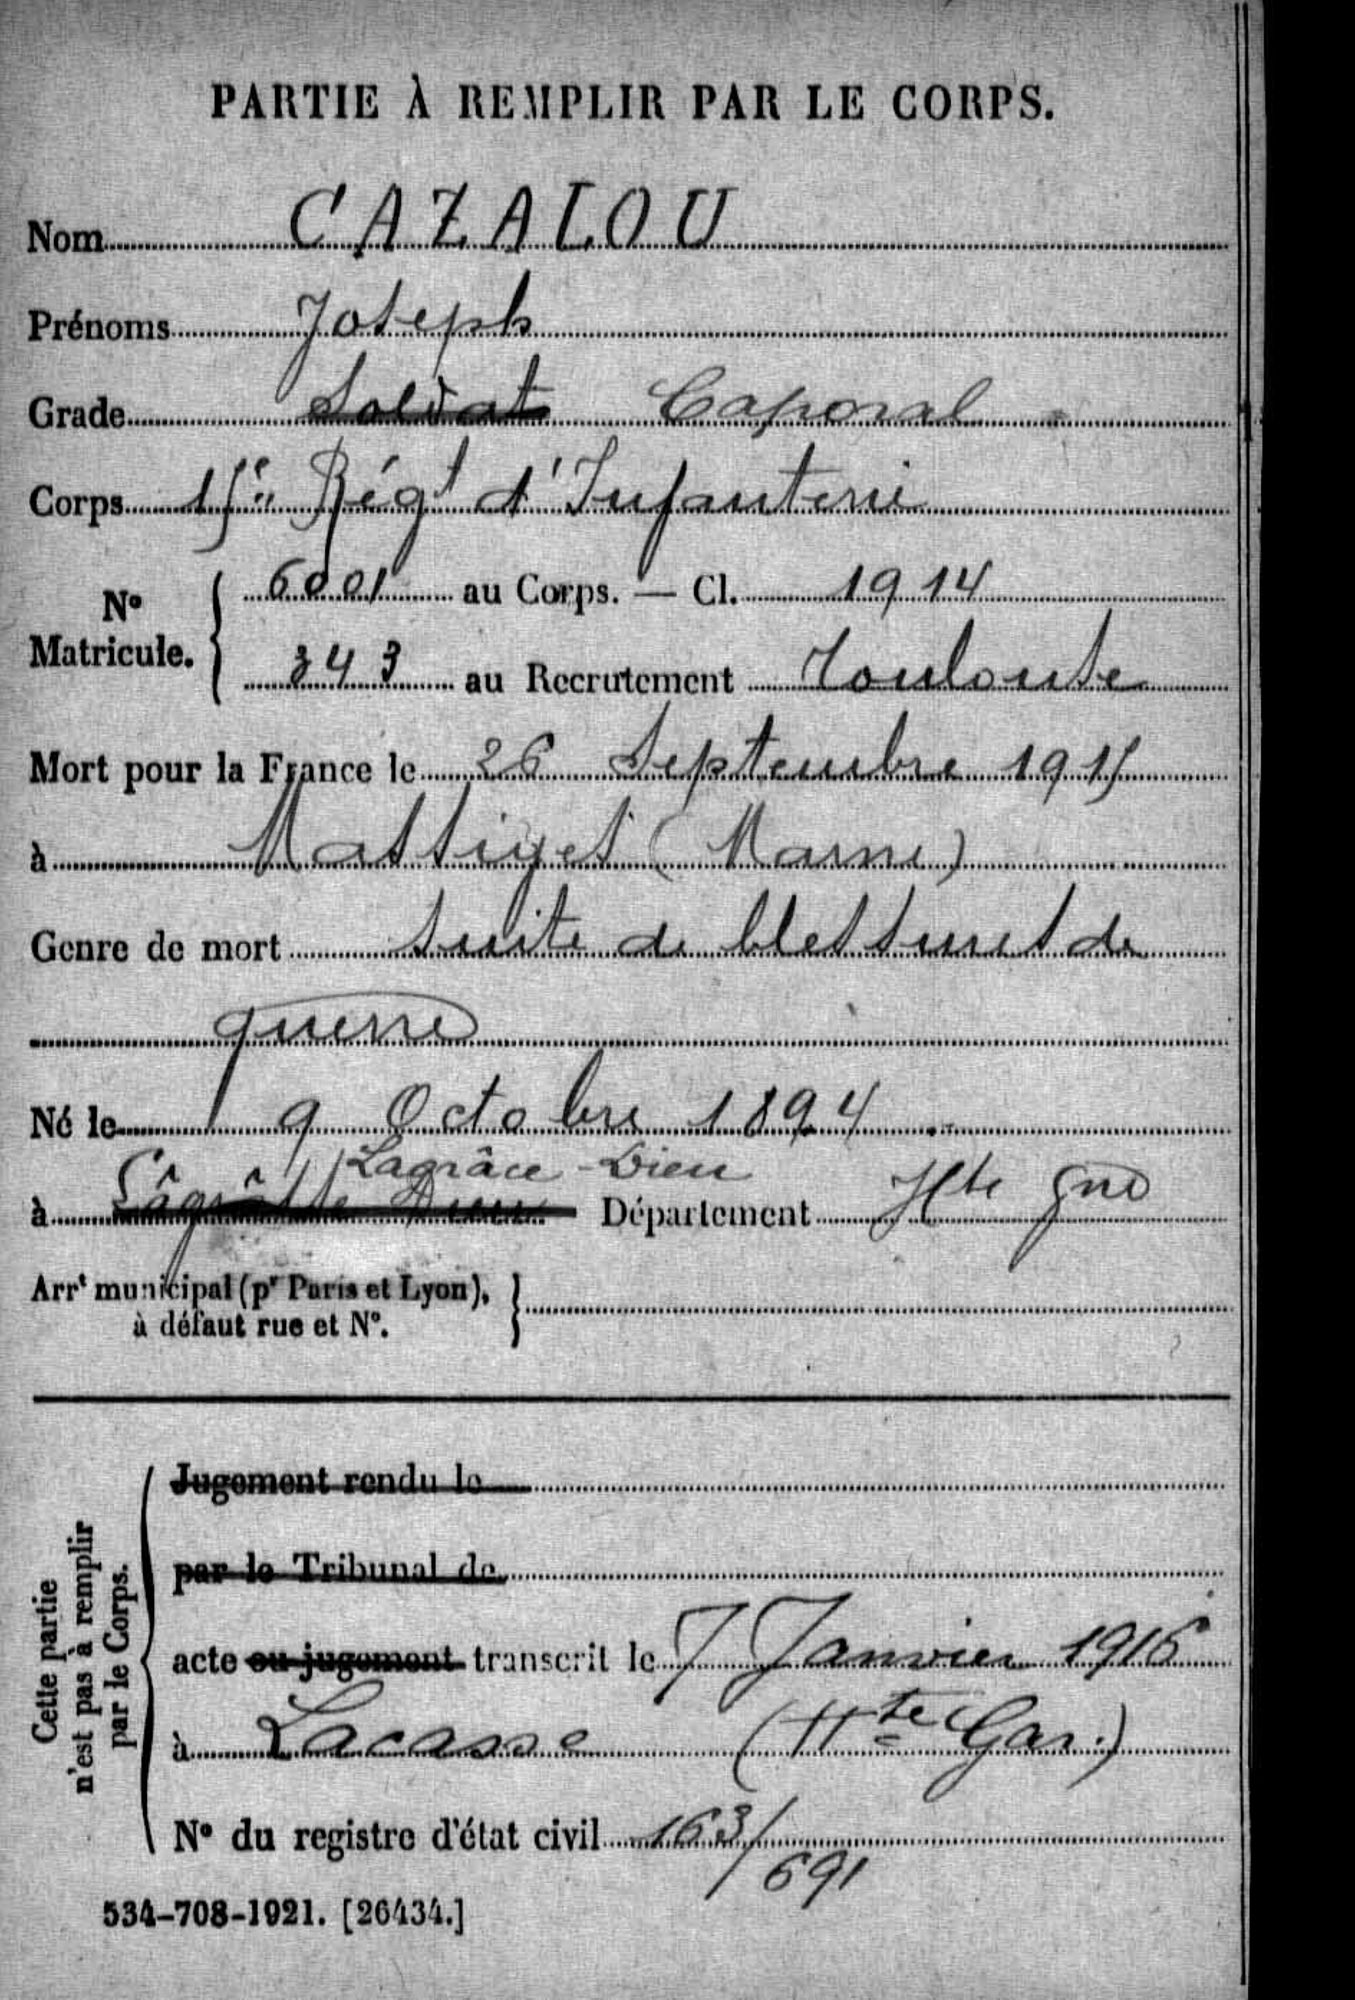 PARTIE À REMPLIR PAR LE CORPS.
Nom CAZALOU
Prénoms Joseph
Grade Soldat Caporal
Corps 15e Régt d'Infanterie
N° Matricule. 6001 au Corps. — Cl. 1914
343 au Recrutement Toulouse
Mort pour la France le 26 Septembre 1915
à Massiges (Marne)
Genre de mort suite de blessures de
guerre
Né le 9 Octobre 1894
Lagrâce-Dieu
à Lâgrâsse Dieu Département Hte Gne
Arrt municipal (pr Paris et Lyon),
à défaut rue et N°.
Cette partie
n'est pas à remplir
par le Corps.
Jugement rendu le
par le Tribunal de
acte ou jugement transcrit le 7 Janvier 1916
à Lacasse (Hte Gar.)
N° du registre d'état civil 163/
691
534-708-1921. [26434.]